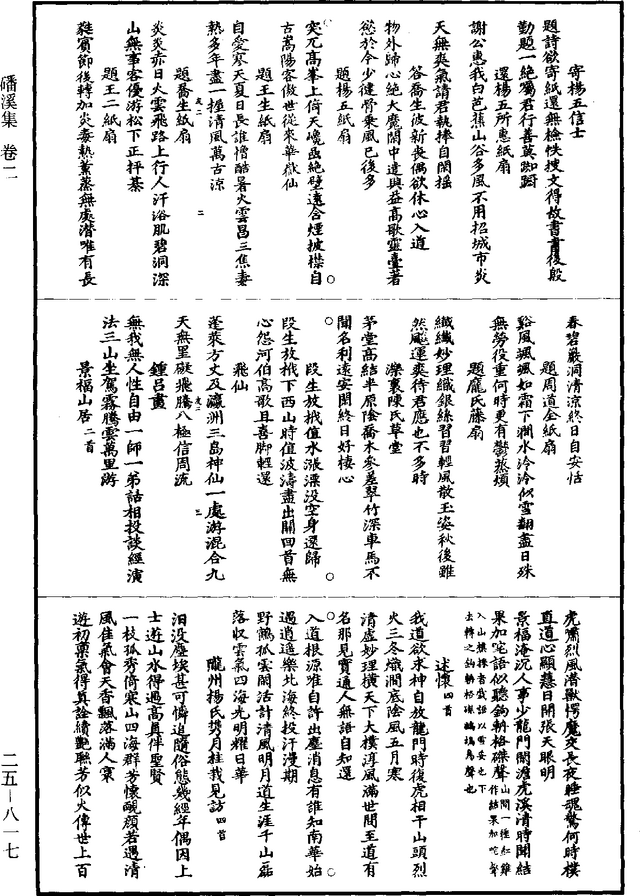 寄楊五信士
題詩欲寄紙還無檢帙搜文得故書書後殷
勤題一絕獨君行善莫踟躕
還楊五所惠紙扇
謝公惠我白芭蕉山谷多風不用招城市炎
天無爽氣請君執捧自閑搖
答喬生彼新喪偶欲休心入道
物外歸心絕大魔閙中遣興益高歌靈臺著
慾於今少健骨乘風已後多
題楊五紙扇
突兀高峯上倚天巉嵒絕壁遠含煙披襟自
古嵩陽客傲世從來華嶽仙
題王生紙扇
自愛寒天夏日長誰憎酷暑火雲昌三焦妻
熱多年盡一極清風萬古涼
題喬生紙扇
炎炎赤日火雲飛路上行人汗浴肌碧洞深
山無事客優游松下正抨棊
題王二紙扇
蕤賓節後轉加炎毒熱薰蒸無處潜唯有長
春碧巖洞清涼終日自安恬
題周道全紙扇
谿風颯颯如霜下澗水泠泠似雪翻盡日殊
無勞役重何時更有鬱蒸煩
題龐氏藤扇
纖纖妙理織銀絲習習輕風散玉姿秋後雖
然颺運爽待君應也不多時
濼裏陳氏草堂
茅堂高結半原陰喬木參差翠竹深車馬不
聞名利遠安閑終日好棲心
段生放栰值水漲漂没空身還歸
段生放栰下西山時值波濤盡出關四首無
心怨河伯高歌且喜脚輕還
飛仙
蓬萊方丈及瀛洲三島神仙一處游混合九
天無罣礙飛騰八極信周流
鍾吕畫
無我無人性自由一師一弟詰相投談經演
法三山坐駕霧騰雲萬里游
景福山居二首
虎嘯烈風潛獸愕魔交長夜睡魂驚何時樸
直道心顯慧日開張天眼明
景福淹沉人事少龍門閑澹虎溪清時聞結
果加咤語似聽鉤輈格磔聲山間一種紅雞作結果加咤聲
入山樵採者戲語以為妄也下
去轉之鉤輈格磔鷓鴣鳥聲也
述懷四首
我道欲求神自放龍門時復虎相干山頭烈
火三冬熾澗底陰風五月寒
清虛妙理横天下大樸淳風滿世間至道有
名那見實通人無語自知還
入道根源难自許出塵消息有誰知南華始
過逍遥樂北海終投汗漫期
野鶴孤雲閑活計清風明月道生涯千山磊
落収雲氣四海光明耀日華
隴州楊氏携月桂我見訪四首
汨没塵埃甚可憐追隨俗態幾經年偶因上
士遊山水得遇高真伴聖賢
一枝孤秀倚寒山四海群芳懷靦顔若遇清
風佳氣會天香飄落滿人寰
遊初稟氣得真詮續艷聯芳似火傳世上百
磻溪集 卷二
二五—八一七